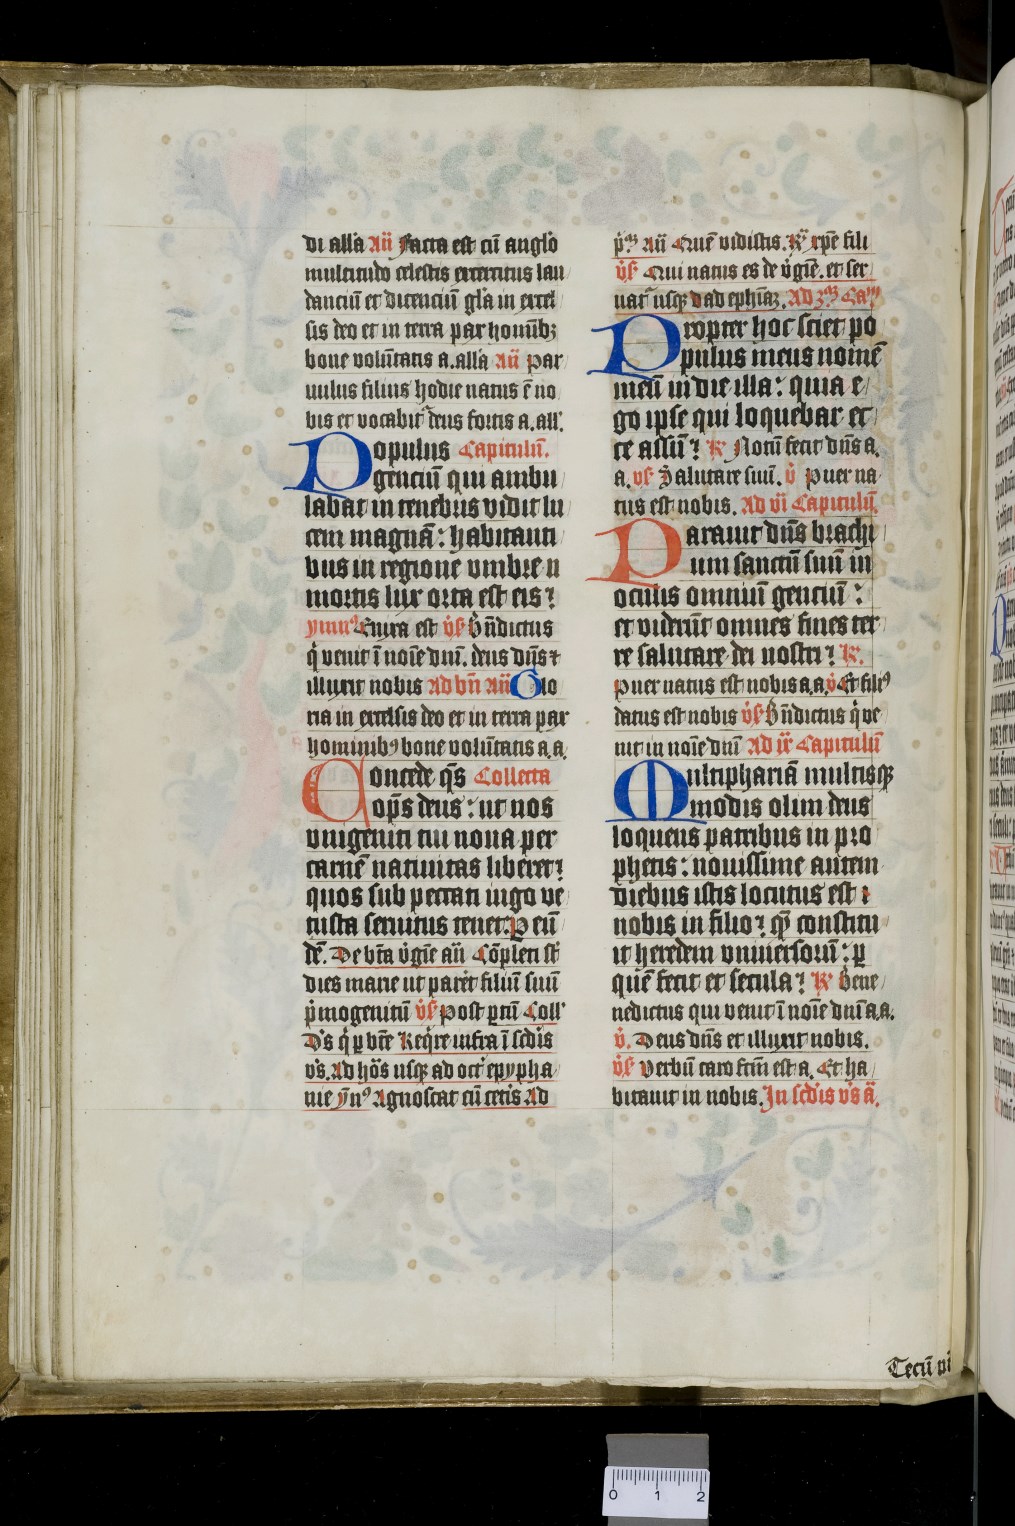 di alla Añ Facta est cū anglo
multitudo celestis exercitus lau
danciū et dicenciū gla in excel
sis deo et in terra pax hominibꝫ
bone volūtatis a. alla Añ Par
uulus filius hodie natus ē no
bis et vocabit deus fortis a. all'.
Populus Capitulū.
genciū qui ambu
labat in tenebris vidit lu
cem magnā: habitanti
bus in regione vmbre
mortis lux orta est eis?
ymn9 Enixa est vs Bn̄dictus
q̇ venit ī noīe dnī. deus dn̄s et
illuxit nobis Ad bn̄ Añ Glo
ria in excelsis deo et in terra pax
hominibꝰ bone volūtatis a. a.
Concede qs̄ Collecta
ops̄ deus: ut nos
vnigeniti tui noua per
carnē natiuitas liberet?
quos sub peccati iugo ve
tusta seruitus tenet. P eū
dē. De bt̄a v̇gīe añ Cōpleti st̄
dies marie ut paret filiū suū
pͥmogenitū vs Post ptū Coll'
Ds q̇ p bt̄e Reqͥre infra ī scdīs
vs. Ad hōs usqꝫ ad oct' epypha
nie yn9 Agnoscat cū cetis Ad
pͥmā Añ Quē vidistis. R xpē fili
vs Qui natus es de v̇gīe. et ser
uat' usqꝫ ad ephiāꝫ. Ad 3ā Cam
Propter hoc sciet po
pulus meus nomē
meū in die illa: quia e
go ipse qui loquebar ec
ce assū? R Notū fecit dn̄s a.
a. vs Salutare suū. v Puer na
tus est nobis. Ad vi Capitulū
Parauit dn̄s brachi
um sanctū suū in
oculis omniū genciū:
et viderūt omnes fines ter
re salutare dei nostri? R.
Puer natus est nobis a. a. v Et filiꝰ
datus est nobis vs Bn̄dictus q̇ ve
nit in noīe dnī Ad ix Capitulū
Multiphariā multisqꝫ
modis olim deus
loquens patribus in pro
phetis: nouissime autem
diebus istis locutus est
nobis in filio? quē constitu
it heredem vniuersorū: p
quē fecit et secula? R Bene
nedictus qui venit ī noīe dnī a. a.
v. Deus dn̄s et illuxit nobis.
vs Verbū caro fctū est a. Et ha
bitauit in nobis. In scdīs vs ā.
Tecū
0 1 2